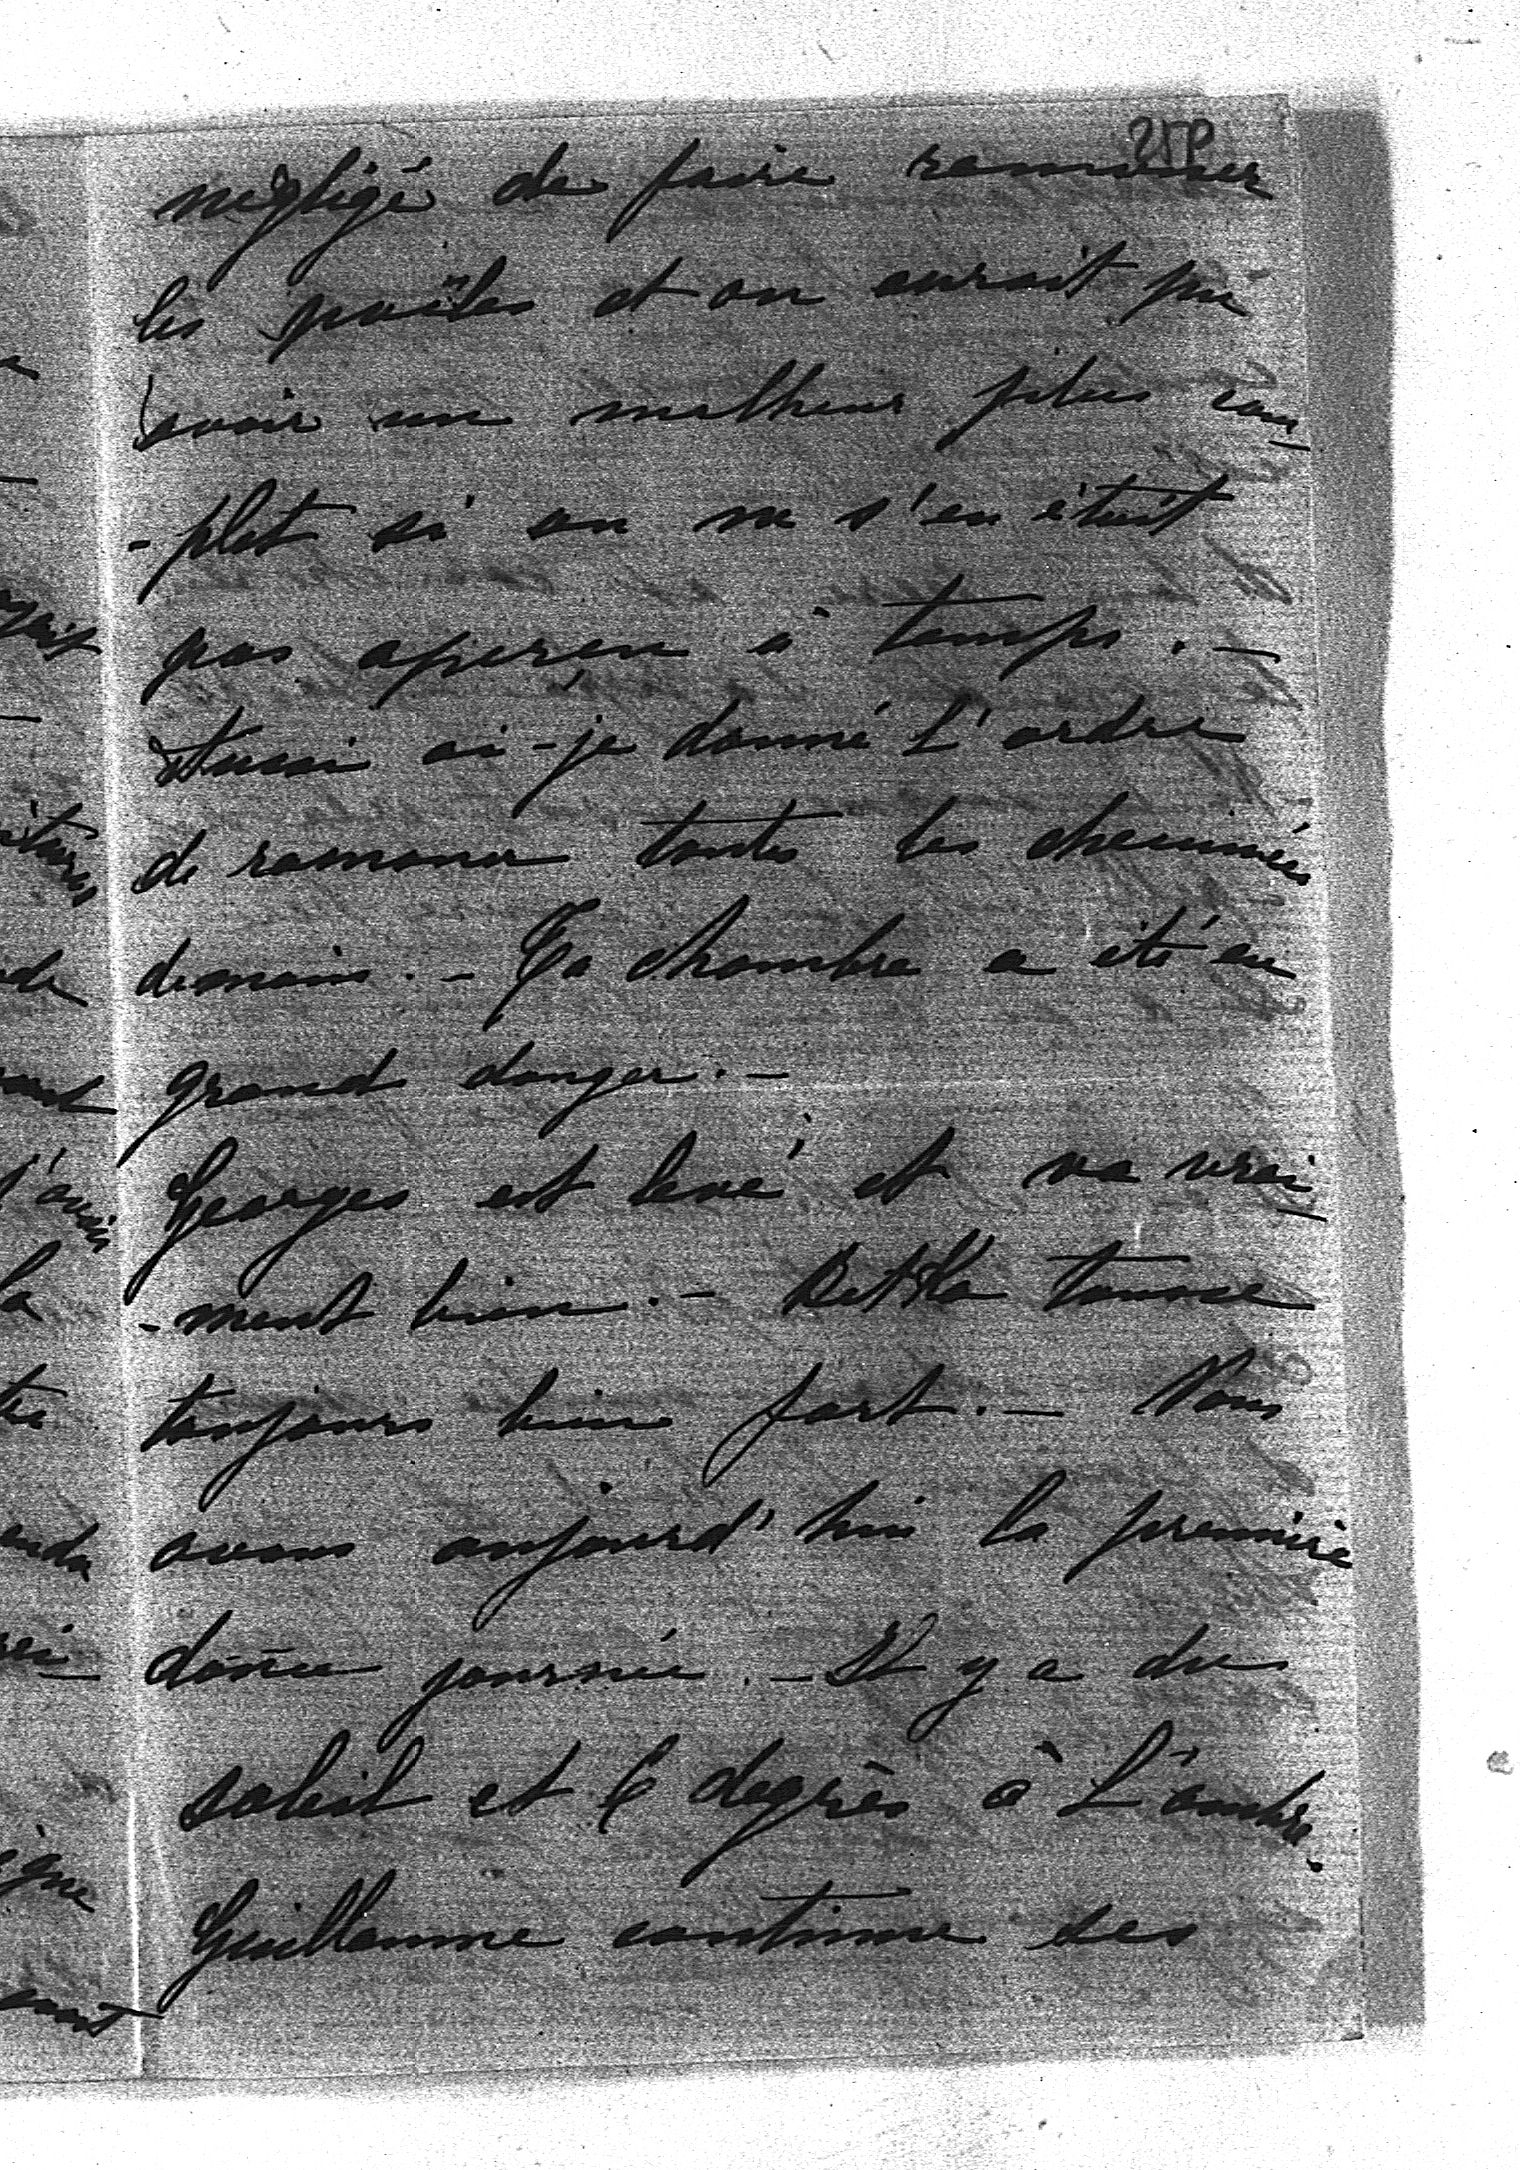 259
négligé de faire ramoner
les poëles et on aurait pu
avoir un malheur plus com-
-plet si on ne s'en était
pas aperçu à temps. -
Aussi ai-je donné l'ordre
de ramoner toutes les cheminées
demain. - Ta chambre a été en
grand danger. -
Georges est levé et va vrai-
-ment bien. - Betka tousse
toujours bien fort. - Nous
avons aujourd'hui la première
douce journée. - Il y a du
soleil et 6 degrès à l'ombre.
Guillaume continue ses